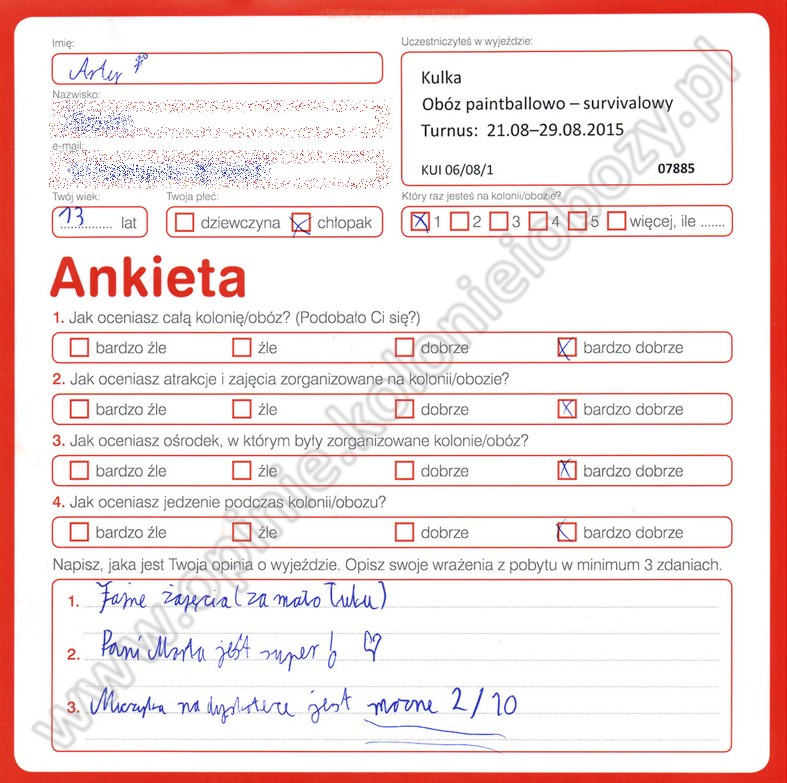 Imię:
Uczestniczyłeś w wyjeździe:
Kulka
Obóz paintballowo – survivalowy
Turnus: 21.08–29.08.2015
KUI 06/08/1 07885
Nazwisko:
e-mail:
Twój wiek: Twoja płeć: Który raz jesteś na kolonii/obozie?
13 lat dziewczyna chłopak 1 2 3 4 5 więcej, ile .......
Ankieta
1. Jak oceniasz całą kolonię/obóz? (Podobało Ci się?)
bardzo źle źle dobrze bardzo dobrze
2. Jak oceniasz atrakcje i zajęcia zorganizowane na kolonii/obozie?
bardzo źle źle dobrze bardzo dobrze
3. Jak oceniasz ośrodek, w którym były zorganizowane kolonie/obóz?
bardzo źle źle dobrze bardzo dobrze
4. Jak oceniasz jedzenie podczas kolonii/obozu?
bardzo źle źle dobrze bardzo dobrze
Napisz, jaka jest Twoja opinia o wyjeździe. Opisz swoje wrażenia z pobytu w minimum 3 zdaniach.
1. Fajne zajęcia (za mało łuku)
2. Pani Marta jest super!
3. Muzyka na dyskotece jest mocne 2/10
www.opinie.kolonieiobozy.pl